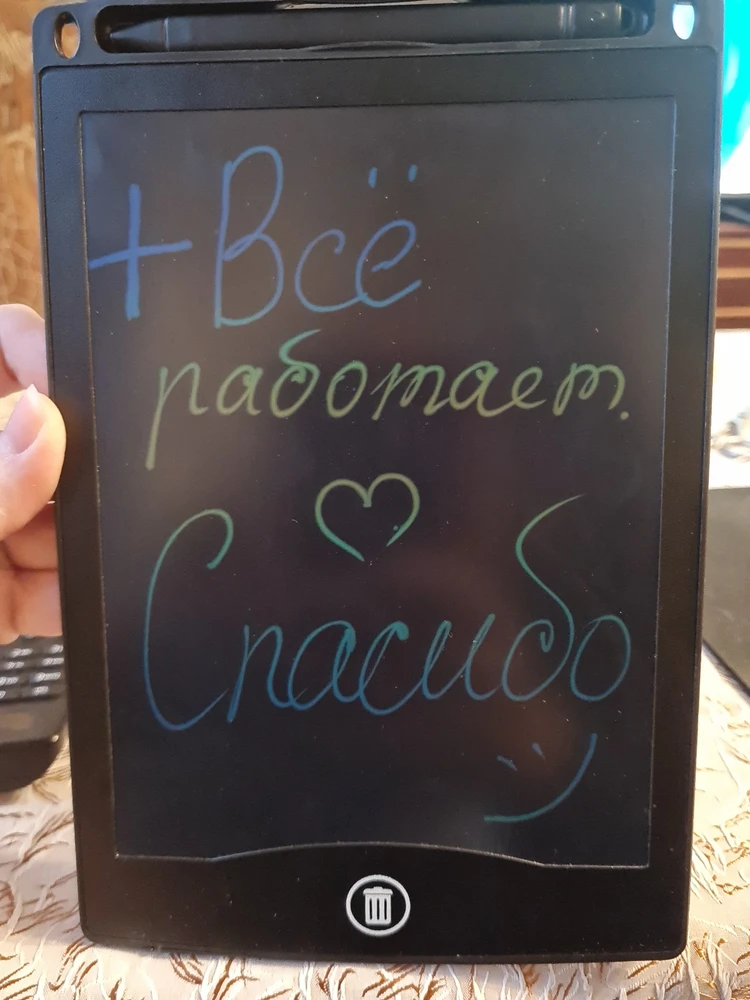 +Всё
работает.
♡
Спасибо
:)